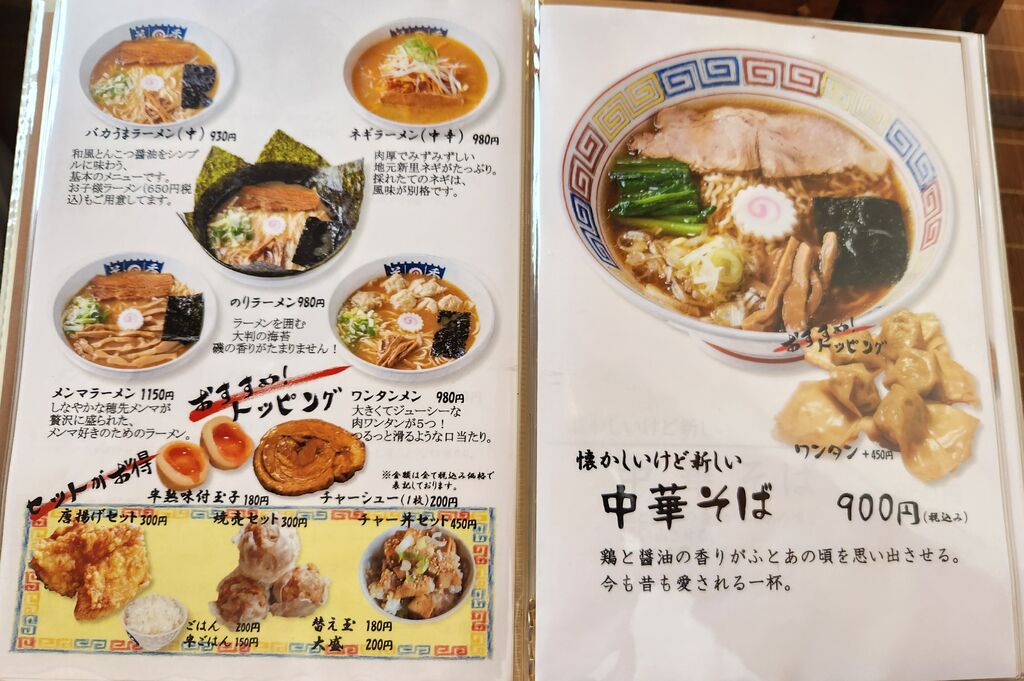 バカうまラーメン(中) 930円
和風とんこつ醤油をシンプ
ルに味わう、
基本のメニューです。
お子様ラーメン(650円税
込)もご用意してます。
ネギラーメン(中辛) 980円
肉厚でみずみずしい
地元新里ネギがたっぷり。
採れたてのネギは、
風味が別格です。
のりラーメン980円
ラーメンを囲む
大判の海苔
磯の香りがたまりません!
メンマラーメン 1150円
しなやかな穂先メンマが
贅沢に盛られた、
メンマ好きのためのラーメン。
ワンタンメン 980円
大きくてジューシーな
肉ワンタンが5つ!
つるっと滑るような口当たり。
おすすめ!
トッピング
半熟味付玉子180円
チャーシュー(1枚)200円
※金額は全て税込み価格で
表記しております。
セットがお得
唐揚げセット300円
焼売セット300円
チャー丼セット450円
ごはん 200円
半ごはん 150円
替え玉 180円
大盛 200円
おすすめ!
トッピング
ワンタン +450円
懐かしいけど新しい
中華そば 900円(税込み)
鶏と醤油の香りがふとあの頃を思い出させる。
今も昔も愛される一杯。